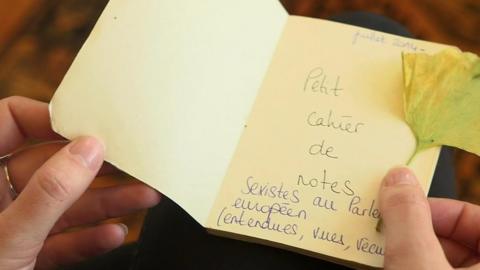 juillet 2014-
Petit
cahier
de
notes
sexistes au Parle
européen
(entendues, vues, vécu